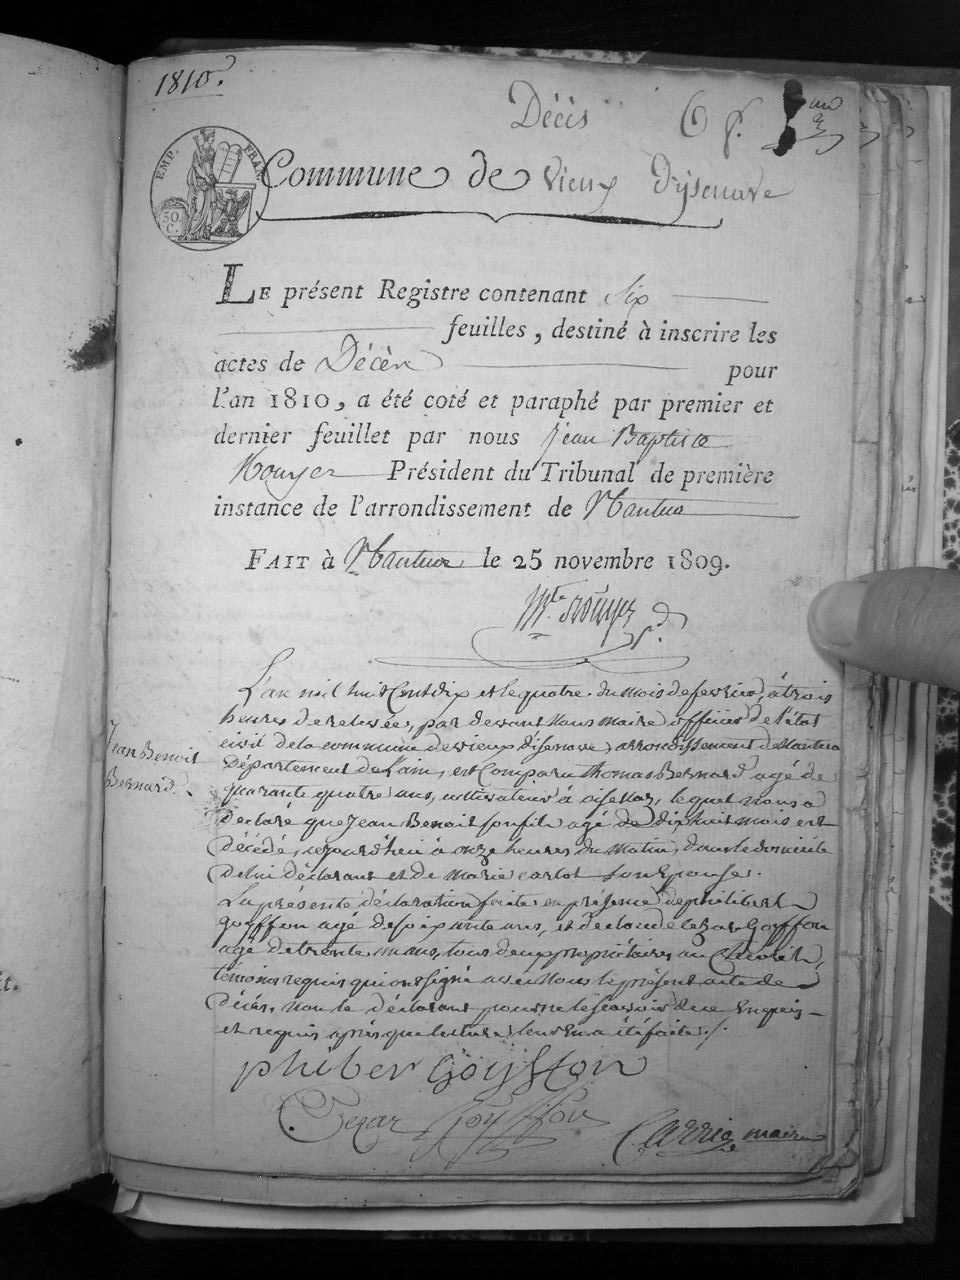 1810.
Décès 6 f.
EMP. FRAN.
50 C.
Commune de vieux d'ysenave
LE présent Registre contenant six
feuilles, destiné à inscrire les
actes de Décès pour
l'an 1810, a été coté et paraphé par premier et
dernier feuillet par nous Jean Baptiste
Rouyer Président du Tribunal de première
instance de l'arrondissement de Nantua
FAIT à Nantua le 25 novembre 1809.
Rouyer
L'an mil huit Cent dix et le quatre du mois de fevrier, à trois
heures de relevée, par devant nous maire officier de l'état
civil de la commune de vieux d'isenave, arrondissement de Nantua
Jean Benoit
Bernard.
Département de l'ain, est Comparu thomas Bernard agé de
quarante quatre ans, cultivateur à oisellaz, lequel nous a
déclaré que Jean Benoit son fils agé de dix huit mois est
décédé, cejourd'heui à onze heures du matin, dans le domicile
de lui déclarant et de marie carlot son Epouse.
La présente déclaration faite en présence de philibert
goyffon agé de soixante ans, et de claude cezar Goyffon
agé de trente ans, tous deux propriétaires au
témoins requis qui ont signé avec Nous le présent acte de
Décès, non le déclarant pour ne le sçavoir de ce Enquis
et requis après que lecture leur En a été faite./
phiber Goyffon
Cezar Goyffon
Carrig maire